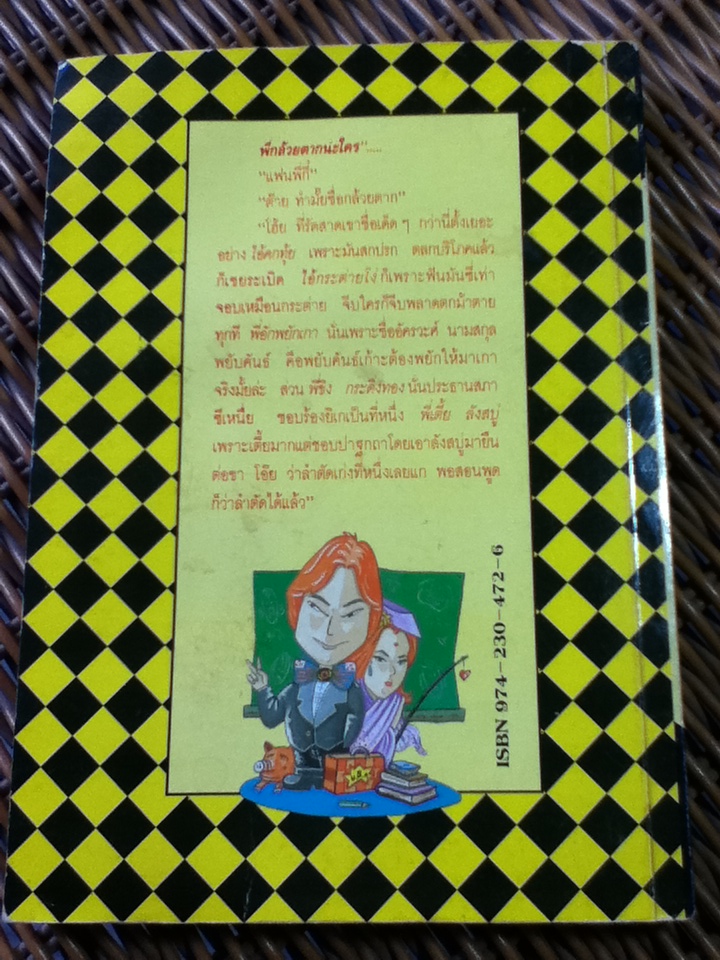 พี่กล้วยตากน่ะใคร".....
"แฟนพี่กี้"
"ต๊าย ทำมั้ยชื่อกล้วยตาก"
"โอ้ย ที่รัดสาดเขาชื่อเด็ด ๆ กว่านี่ตั้งเยอะ
อย่าง ไอ้คกทุ้ย เพราะมันสกปรก ตลกบริโภคแล้ว
ก็เชยระเบิด ไอ้กระต่ายโง่ ก็เพราะฟันมันซี่เท่า
จอบเหมือนกระต่าย จีบใครก็จีบพลาดตกม้าตาย
ทุกที พี่อักพยักเกา นั่นเพราะชื่ออัครวะศ์ นามสกุล
พยับคันธ์ คือพยับคันธ์เก้าะต้องพยักให้มาเกา
จริงมั้ยล่ะ ส่วน พี่ชิง กระดิ่งทอง นั่นประธานสภา
ซีเหนี่ย ชอบร้องยิเกเป็นที่หนึ่ง พี่เตี้ย ลังสบู่
เพราะเตี้ยมากแต่ชอบปาฐกถาโดยเอาลังสบู่มายืน
ต่อขา โอ๊ย ว่าลำตัดเก่งที่หนึ่งเลยแก พอสอนพูด
ก็ว่าลำตัดได้แล้ว"
ISBN 974-230-472-6